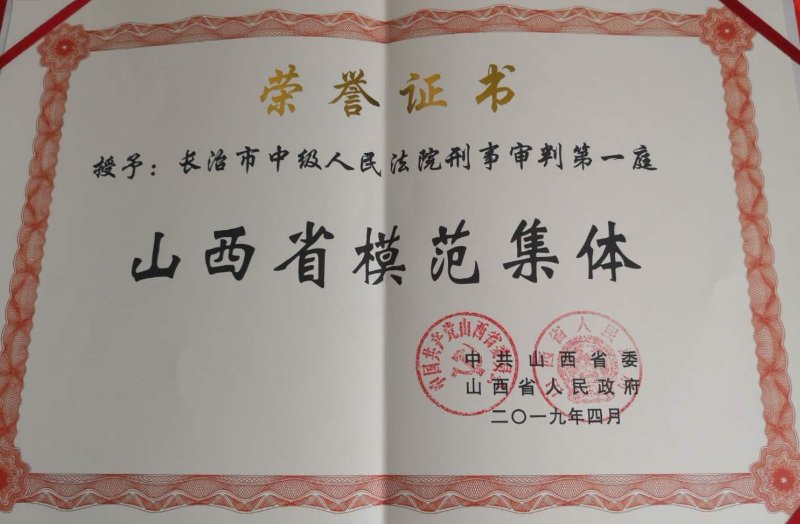 荣誉证书
授予：长治市中级人民法院刑事审判第一庭
山西省模范集体
中共山西省委
山西省人民政府
二〇一九年四月
中国共产党山西省委员会